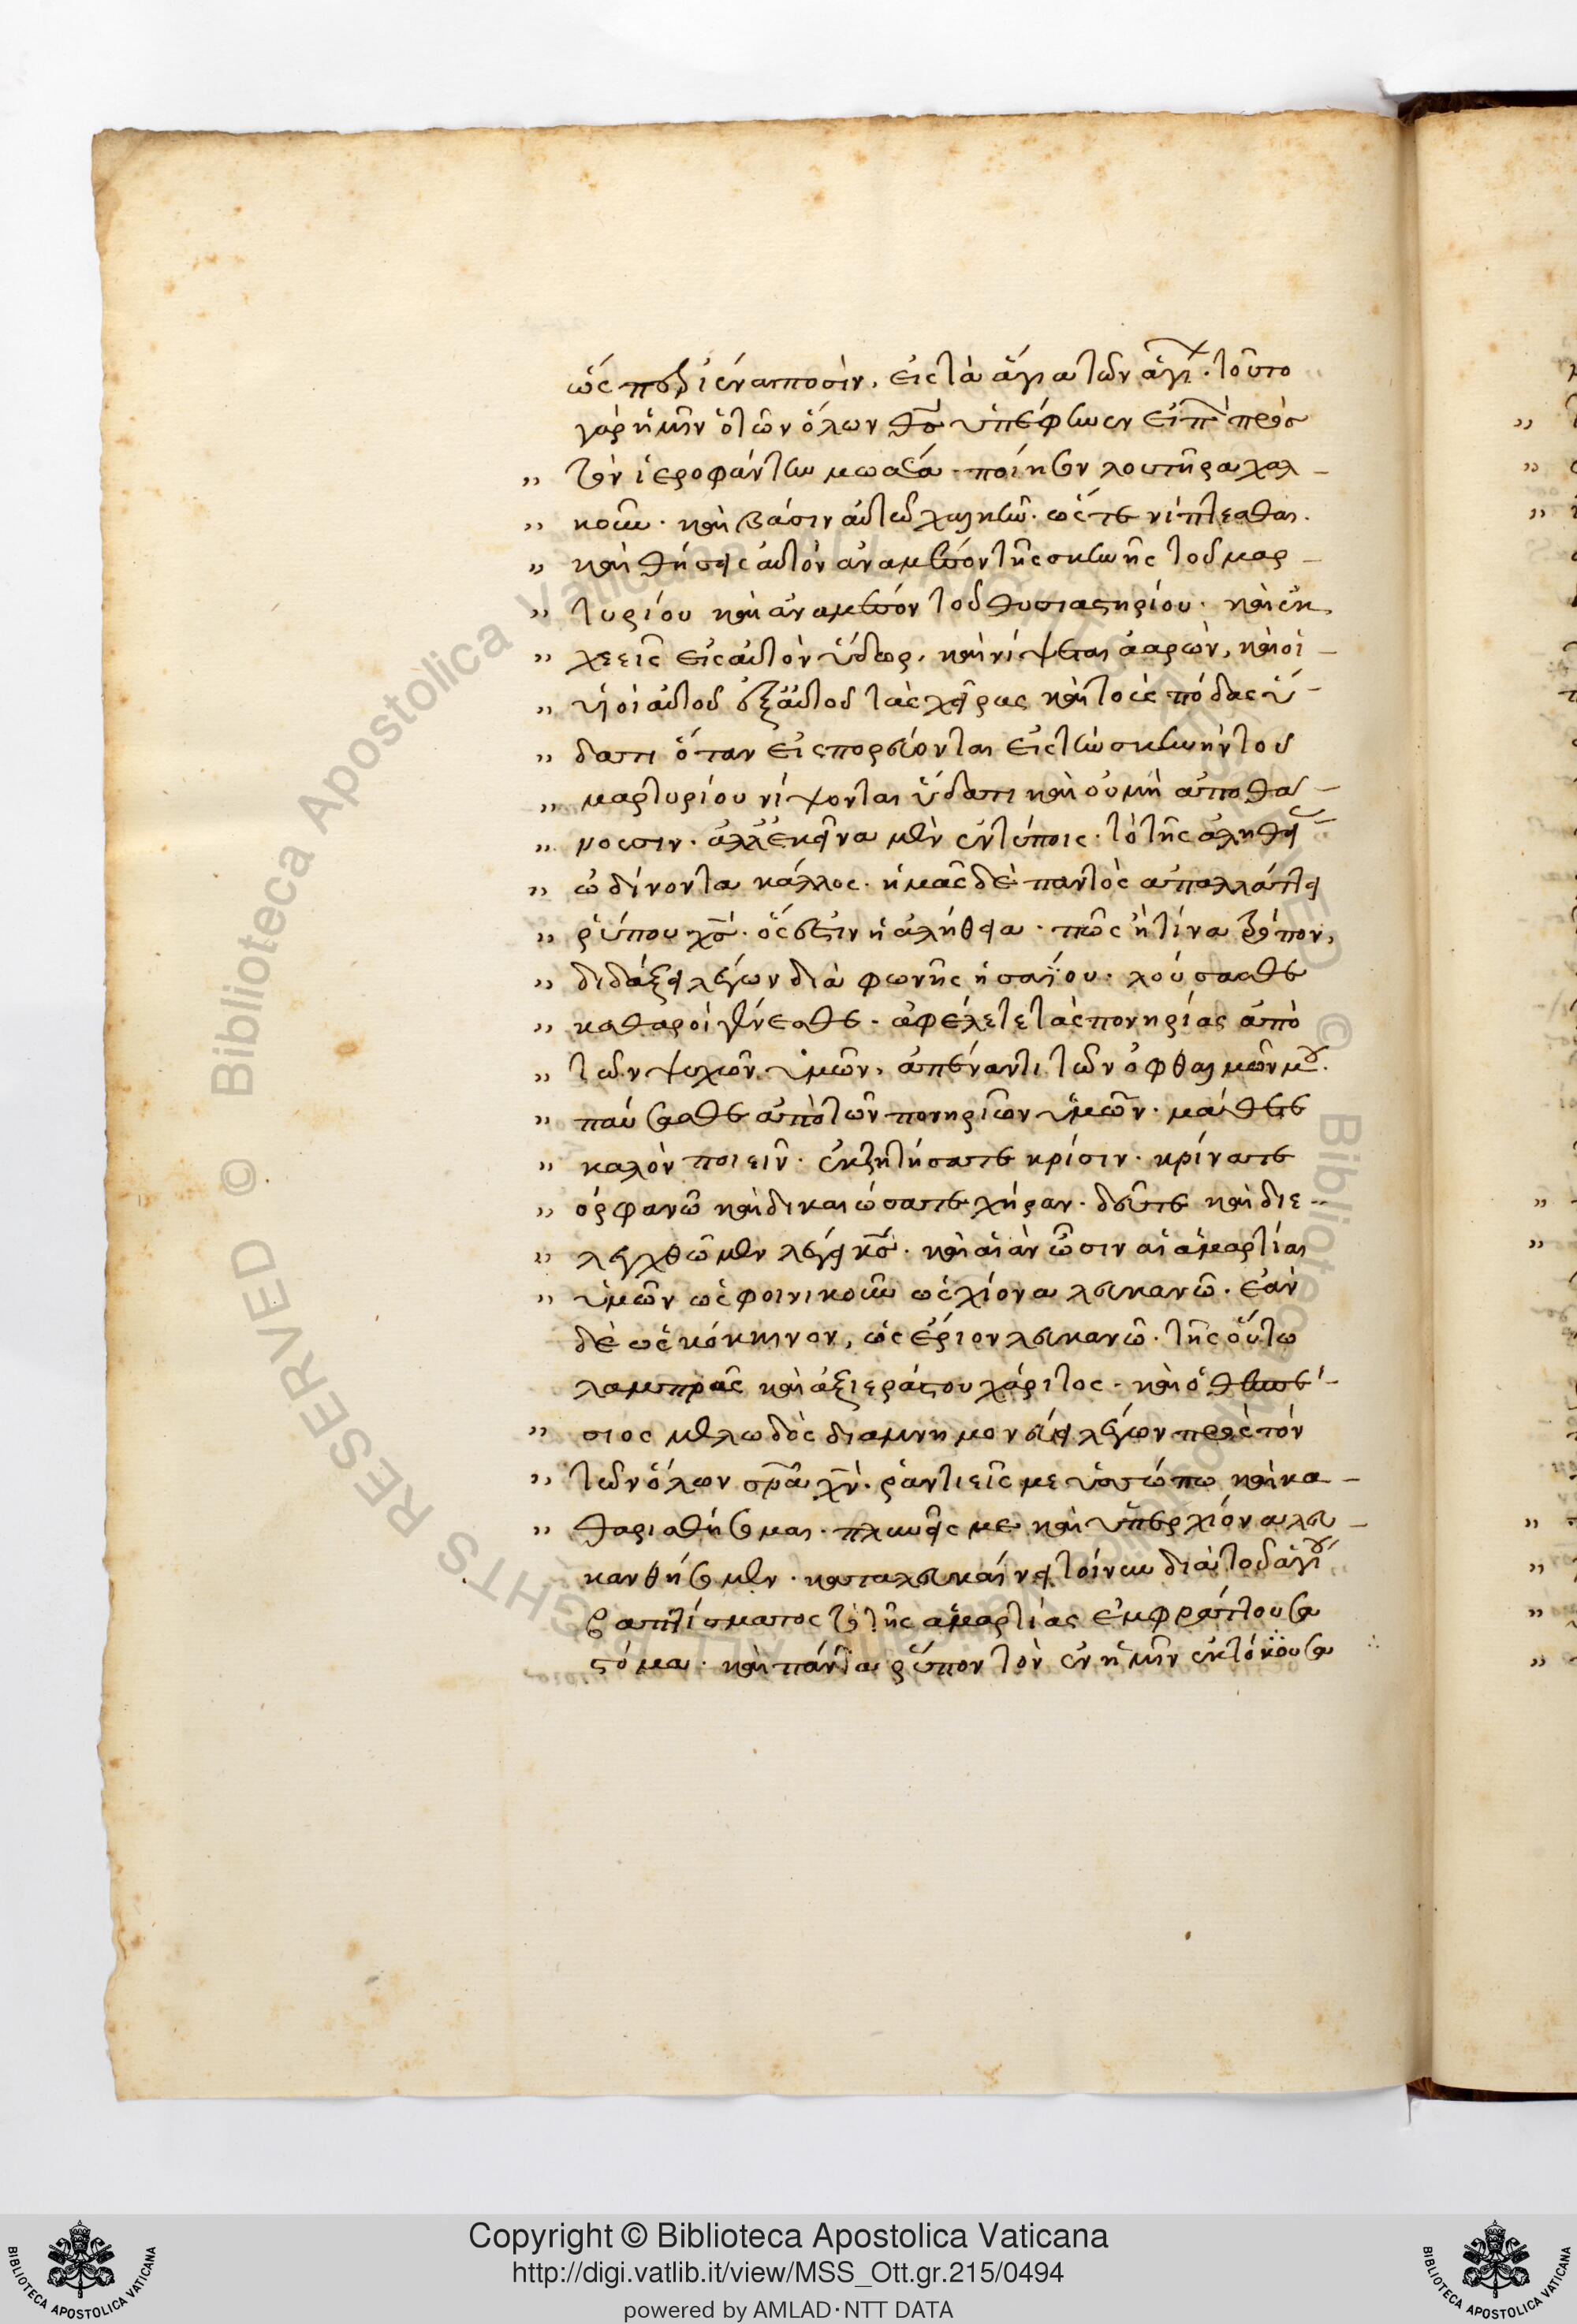 ὡς ποδὶ ἐναποσὶν, εἰς τὰ ἅγια τῶν ἁγί. τοῦτο
γὰρ ἡμῖν ὁ τῶν ὅλων θς ὑπέφηνεν εἰπ πρὸς
„ τὸν ἱεροφάντην μωσέα. ποίησον λουτῆρα χαλ-
„ κοῦν. καὶ βάσιν αὐτῶ χαλκῆν. ὥστε νίπτεσθαι.
„ καὶ θήσεις αὐτὸν ἀναμέσον τῆς σκηνῆς τοῦ μαρ-
„ τυρίου καὶ ἀναμέσον τοῦ θυσιαστηρίου. καὶ ἐκ,
„ χεεῖς εἰς αὐτὸν ὕδωρ, καὶ νίψεται ἀαρὼν, καὶ οἱ-
„ υἱοὶ αὐτοῦ ἐξ αὐτοῦ τὰς χεῖρας καὶ τοὺς πόδας ὕ-
„ δατι ὅταν εἰσπορεύονται εἰς τὴν σκηνὴν τοῦ
„ μαρτυρίου νίψονται ὕδατι καὶ οὐ μὴ ἀποθά-
„ νουσιν. ἀλλ' ἐκεῖνα μὲν ἐν τύποις. τὸ τῆς ἀληθεί
„ ὠδίνοντα κάλλος. ἡμᾶς δὲ παντὸς ἀπαλλάττει
„ ῥύπου χς. ὅς ἐστιν ἡ ἀλήθεια. πῶς ἢ τίνα τρόπον,
„ διδάξει λέγων διὰ φωνῆς ἡσαΐου. λούσασθε
„ καθαροὶ γίνεσθε. ἀφέλετε τὰς πονηρίας ἀπὸ
„ τῶν ψυχῶν ὑμῶν, ἀπέναντι τῶν ὀφθαλμῶν μου.
„ παύσασθε ἀπὸ τῶν πονηριῶν ὑμῶν. μάθετε
„ καλὸν ποιεῖν. ἐκζητήσατε κρίσιν. κρίνατε
„ ὀρφανῶ καὶ δικαιώσατε χήραν. δεῦτε καὶ διε-
„ λεγχθῶμεν λέγει κς. καὶ αἱ ἂν ὦσιν αἱ ἁμαρτίαι
„ ὑμῶν ὡς φοινικοῦν ὡς χίονα λευκανῶ. ἐὰν
δὲ ὡς κόκκινον, ὡς ἔριον λευκανῶ. τῆς οὕτω
λαμπρᾶς καὶ ἀξιεράστου χάριτος. καὶ ὁ θεσπέ-
„ σιος μελωδὸς διαμνημονεύει λέγων πρὸς τὸν
„ τῶν ὅλων σρα χν. ῥαντιεῖς με ὑσσώπω καὶ κα-
„ θαρισθήσομαι. πλυνεῖς με καὶ ὑπὲρ χίονα λευ-
κανθήσομαι. καταλευκαίνει τοίνυν διὰ τοῦ ἁγίου
βαπτίσματος τὸ τῆς ἁμαρτίας ἐμφράττουσα
στόμα. καὶ πάντα ῥύπον τὸν ἐν ἡμῖν ἐκτόκουσα
Copyright © Biblioteca Apostolica Vaticana
http://digi.vatlib.it/view/MSS_Ott.gr.215/0494
powered by AMLAD·NTT DATA